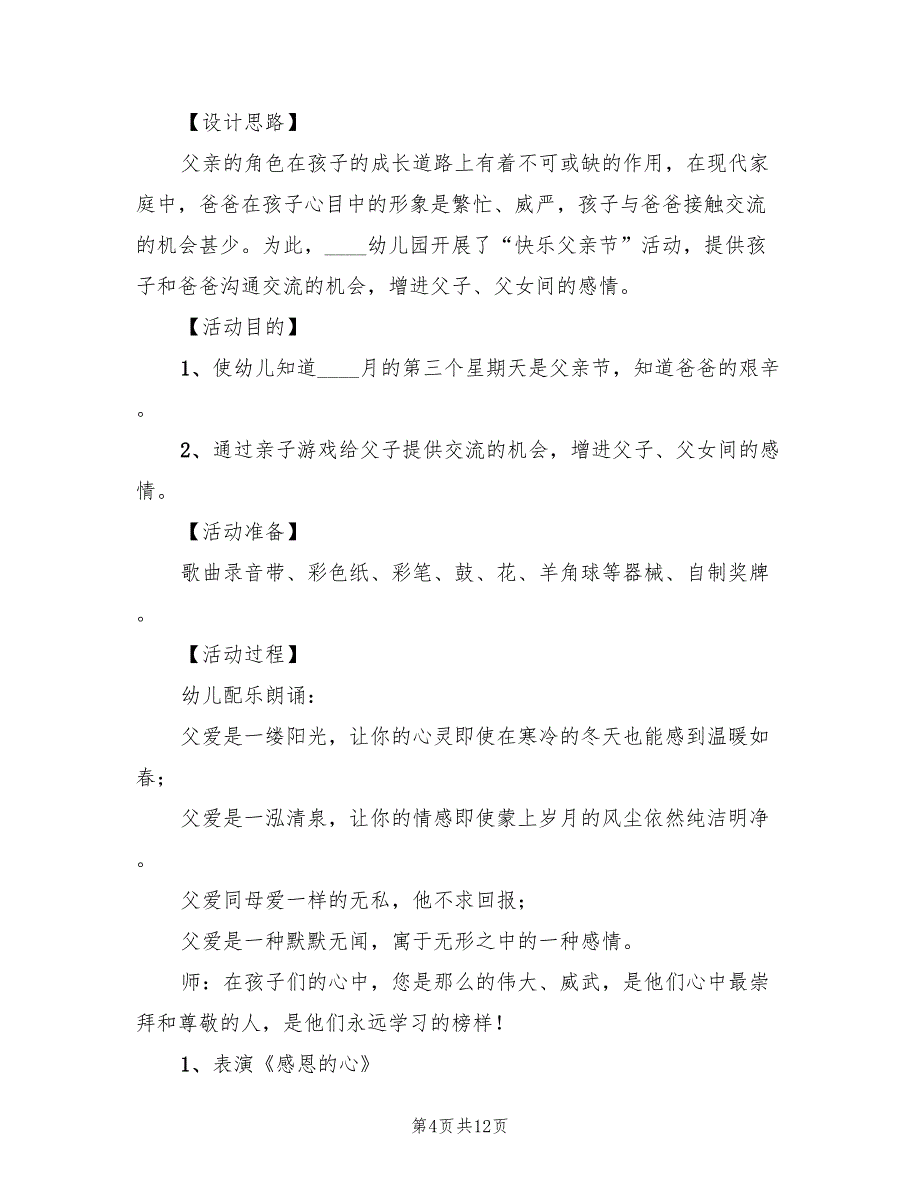 【设计思路】
父亲的角色在孩子的成长道路上有着不可或缺的作用，在现代家
庭中，爸爸在孩子心目中的形象是繁忙、威严，孩子与爸爸接触交流
的机会甚少。为此，____幼儿园开展了“快乐父亲节”活动，提供孩
子和爸爸沟通交流的机会，增进父子、父女间的感情。
【活动目的】
1、使幼儿知道____月的第三个星期天是父亲节，知道爸爸的艰辛
。
2、通过亲子游戏给父子提供交流的机会，增进父子、父女间的感
情。
【活动准备】
歌曲录音带、彩色纸、彩笔、鼓、花、羊角球等器械、自制奖牌
。
【活动过程】
幼儿配乐朗诵：
父爱是一缕阳光，让你的心灵即使在寒冷的冬天也能感到温暖如
春；
父爱是一泓清泉，让你的情感即使蒙上岁月的风尘依然纯洁明净
。
父爱同母爱一样的无私，他不求回报；
父爱是一种默默无闻，寓于无形之中的一种感情。
师：在孩子们的心中，您是那么的伟大、威武，是他们心中最崇
拜和尊敬的人，是他们永远学习的榜样！
1、表演《感恩的心》
第4页共12页